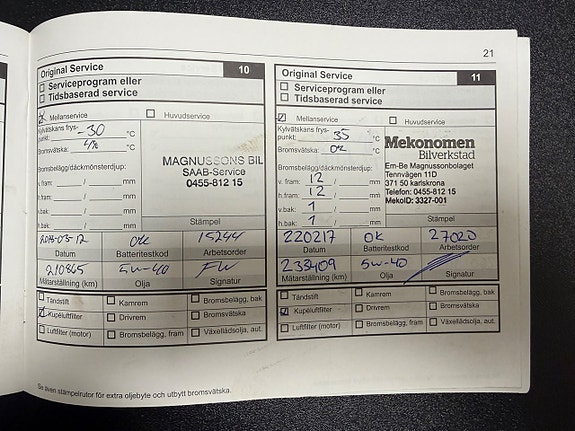 21
Original Service 10
Serviceprogram eller
Tidsbaserad service
Mellanservice Huvudservice
Kylvätskans frys-
punkt: -30 °C
Bromsvätska: 4% °C
Bromsbelägg/däckmönsterdjup:
v. fram: / mm
h.fram: / mm
v.bak: / mm
h.bak: / mm
MAGNUSSONS BIL
SAAB-Service
0455-812 15
Stämpel
2018-03-12 ok 15244
Datum Batteritestkod Arbetsorder
210865 5w-40 FW
Mätarställning (km) Olja Signatur
Tändstift Kamrem Bromsbelägg, bak
Kupéluftfilter Drivrem Bromsvätska
Luftfilter (motor) Bromsbelägg, fram Växellådsolja, aut.
Se även stämpelrutor för extra oljebyte och utbytt bromsvätska.
Original Service 11
Serviceprogram eller
Tidsbaserad service
Mellanservice Huvudservice
Kylvätskans frys-
punkt: 35 °C
Bromsvätska: ok °C
Bromsbelägg/däckmönsterdjup:
v. fram: 12 mm
h.fram: 12 mm
v.bak: 1 mm
h.bak: 1 mm
Mekonomen
Bilverkstad
Em-Be Magnussonbolaget
Tennvägen 11D
371 50 karlskrona
Telefon: 0455-812 15
MekoID: 3327-001
Stämpel
220217 OK 27020
Datum Batteritestkod Arbetsorder
233409 5w-40
Mätarställning (km) Olja Signatur
Tändstift Kamrem Bromsbelägg, bak
Kupéluftfilter Drivrem Bromsvätska
Luftfilter (motor) Bromsbelägg, fram Växellådsolja, aut.